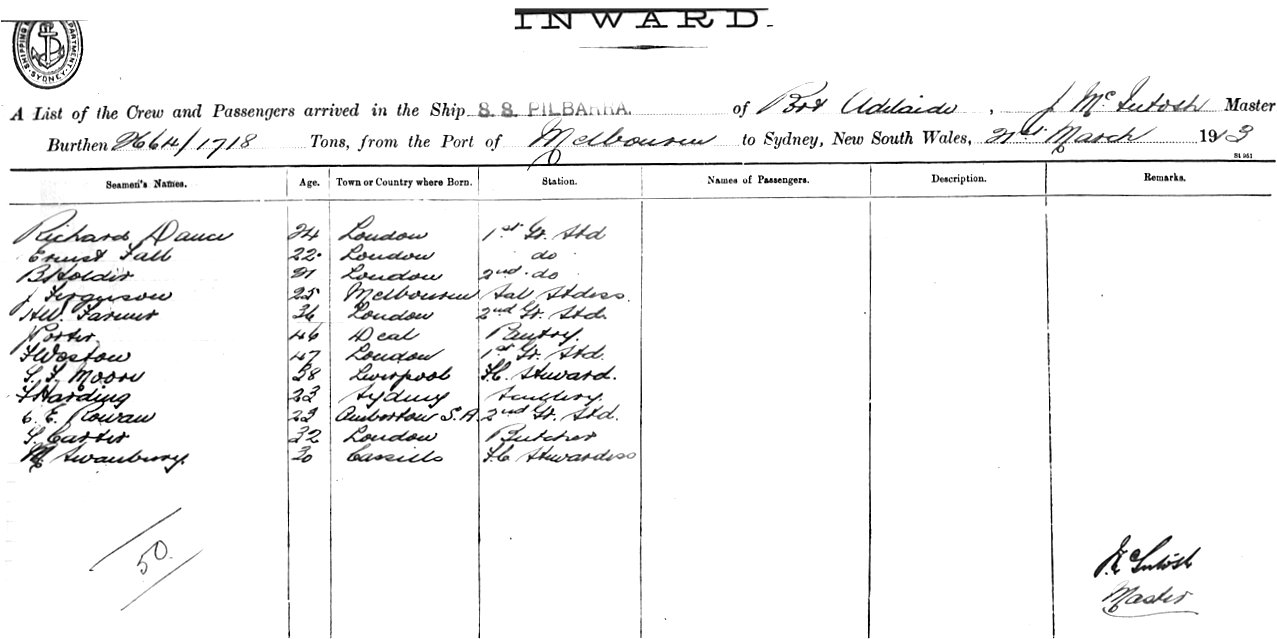 INWARD.
SHIPPING
SYDNEY
A List of the Crew and Passengers arrived in the Ship S. S. PILBARRA. of Port Adelaide, J McIntosh Master
Burthen 2664/1718 Tons, from the Port of Melbourne to Sydney, New South Wales, 21st March 1913
St 951
Seamen's Names. Age. Town or Country where Born. Station. Names of Passengers. Description. Remarks.
Richard Dance 24 London 1st Gr. Std
Ernest Fall 22 London do
B Holder 21 London 2nd do
J Ferguson 25 Melbourne Sal Stdess.
HW. Farmer 36 London 2nd Gr. Std.
Porter 46 Deal Pantry.
F Weston 47 London 1st Gr. Std.
G. F. Moore 38 Liverpool F.C. Steward.
F Harding 23 Sydney
C. E. Rowan 23 S.A. 2nd Gr. Std.
S. Carter 32 London Butcher
M Swanbury. 30 Cassills F.C Stewardess
50
J McIntosh
Master